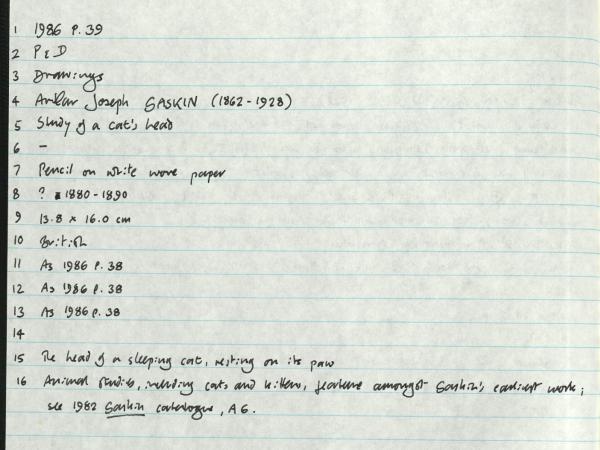 1 1986 P.39
2 P & D
3 Drawings
4 Arthur Joseph GASKIN (1862-1928)
5 Study of a cat's head
6 -
7 Pencil on white wove paper
8 ? 1880-1890
9 13.8 x 16.0 cm
10 British
11 As 1986 P.38
12 As 1986 P.38
13 As 1986 P.38
14
15 The head of a sleeping cat, resting on its paw
16 Animal studies, including cats and kittens, feature amongst Gaskin's earliest work;
see 1982 Gaskin catalogue, A6.